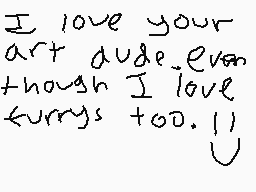 I love your
art dude. even
though I love
furrys too. !!